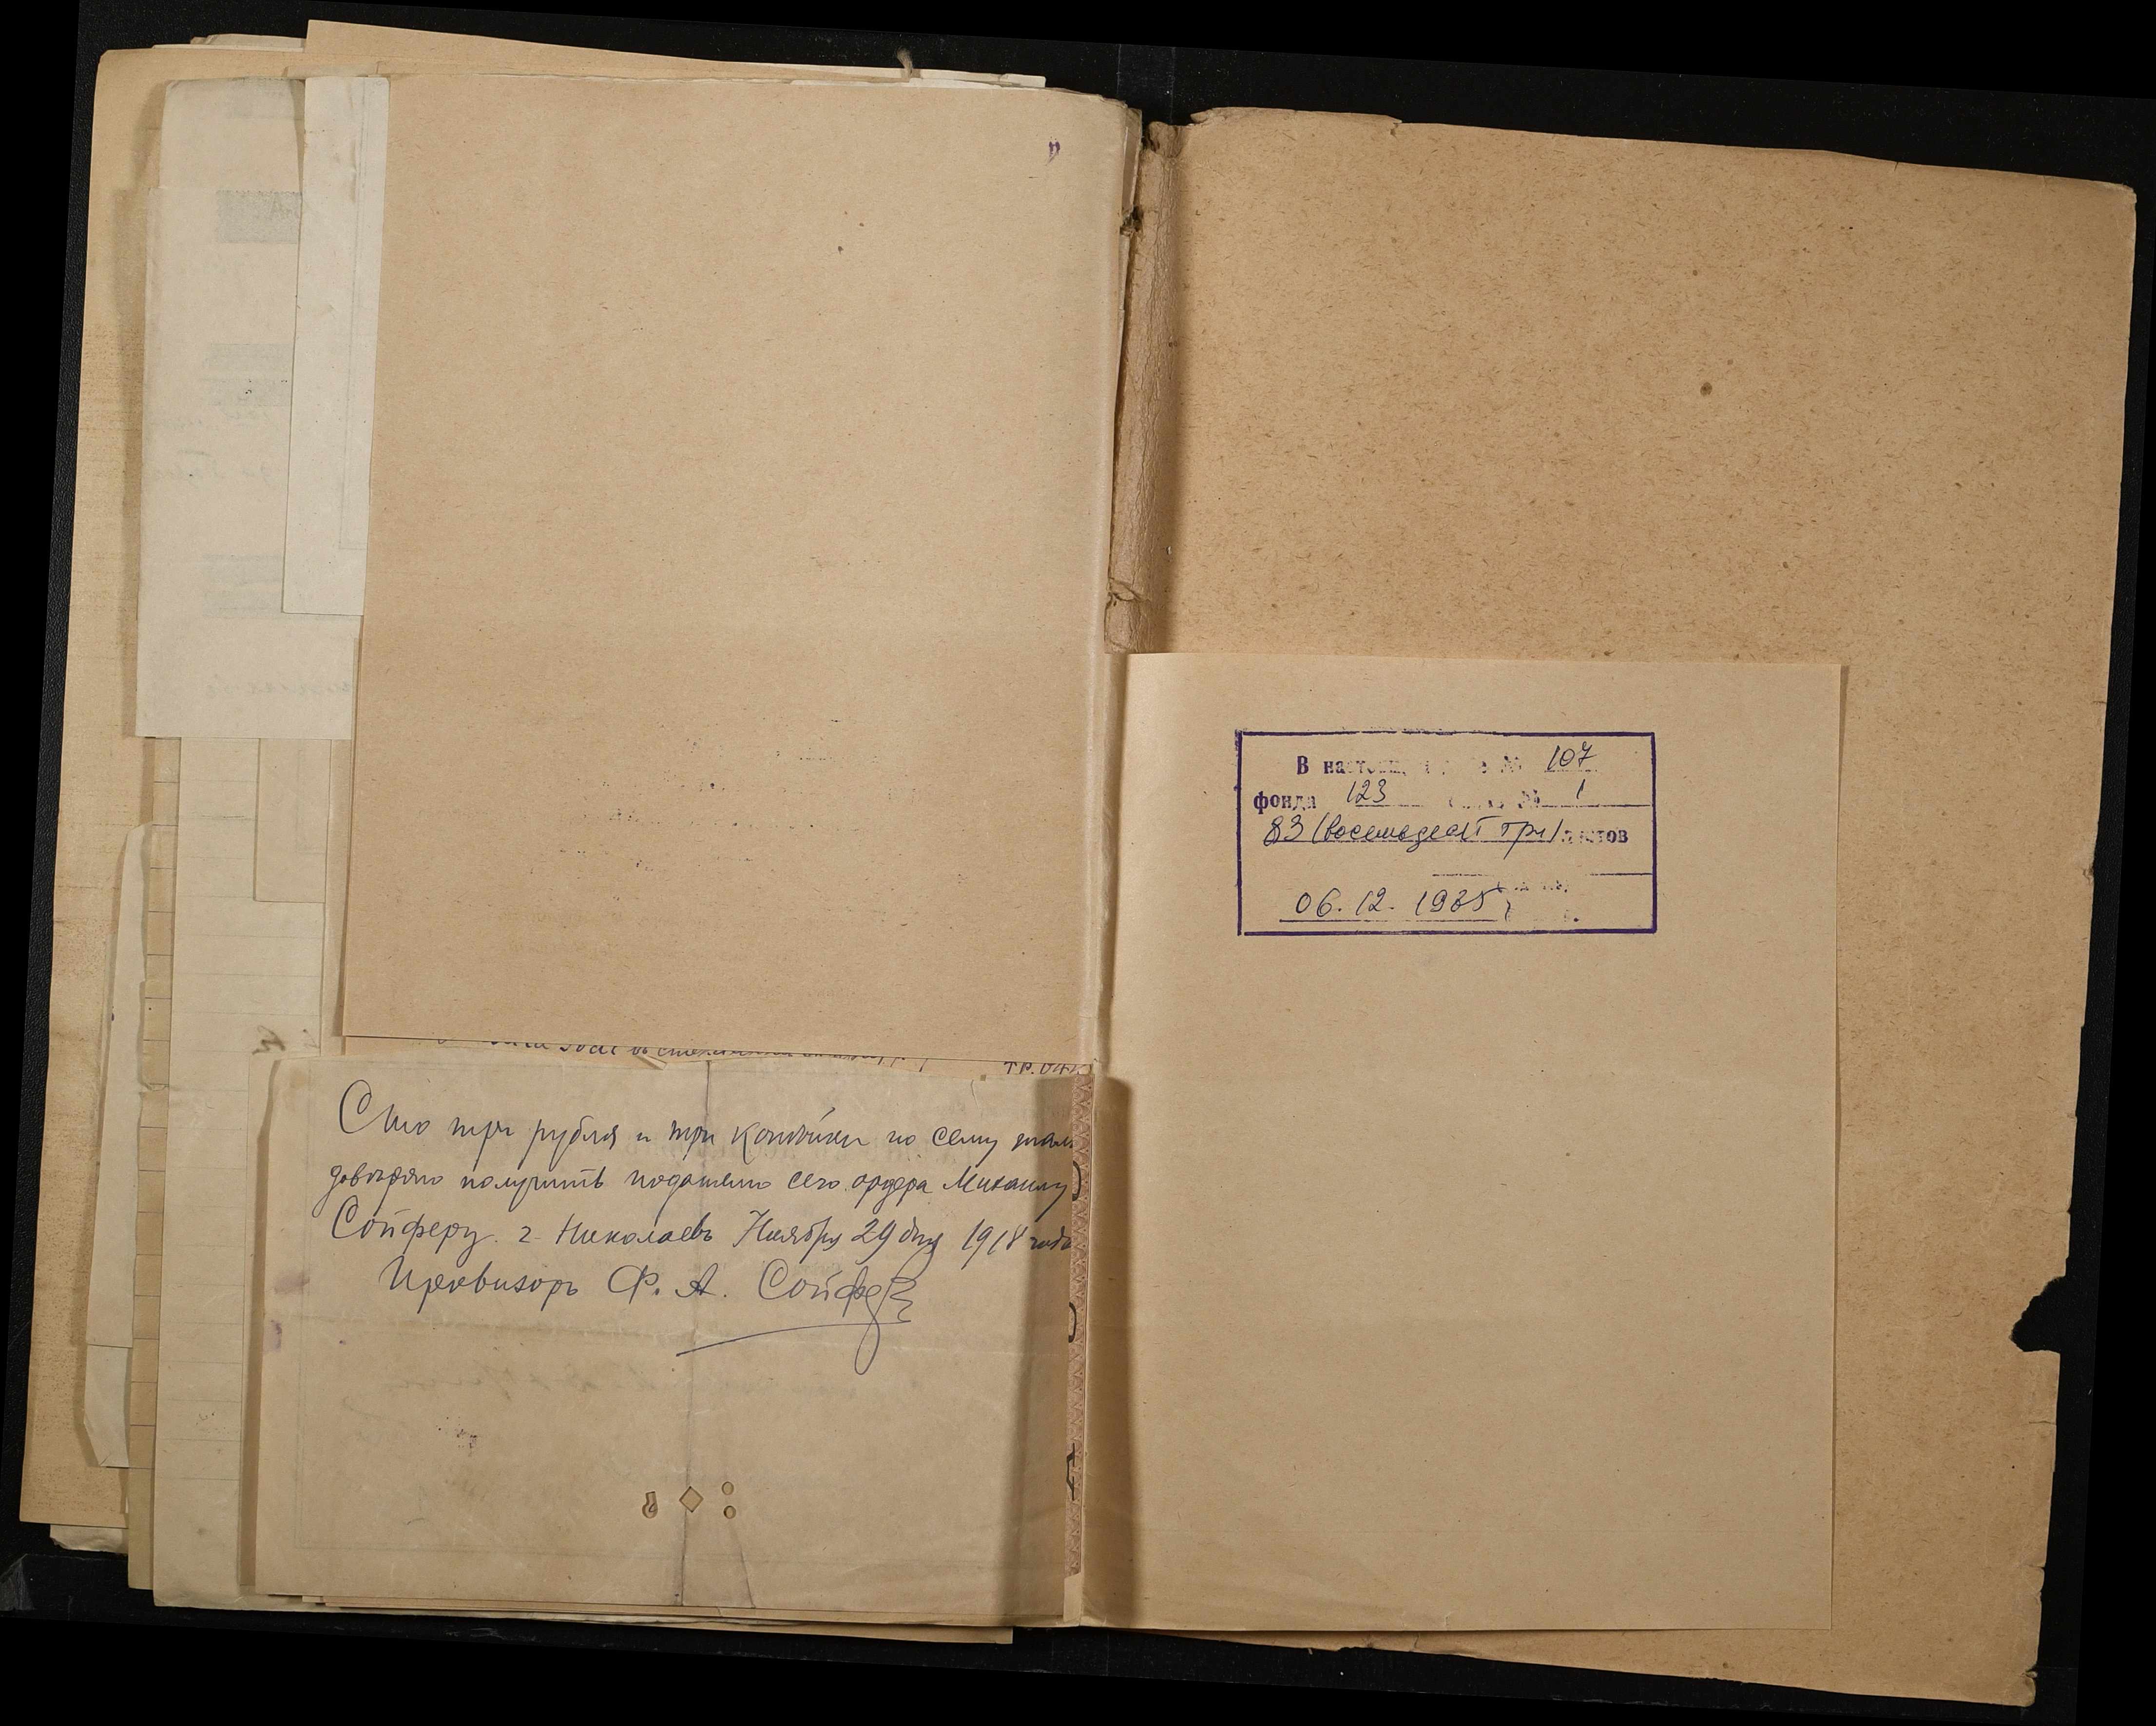 Сто три рубля и три копѣйки по сему
довѣряю получить подателю сего ордера Михаилу
Сойферу. г. Николаевъ Ноября 29 дня 1918 года
Провизоръ Ф. А. Сойфер
В 107
фонда 123 № 1
83 (восемьдесят три) листов
06. 12. 1985